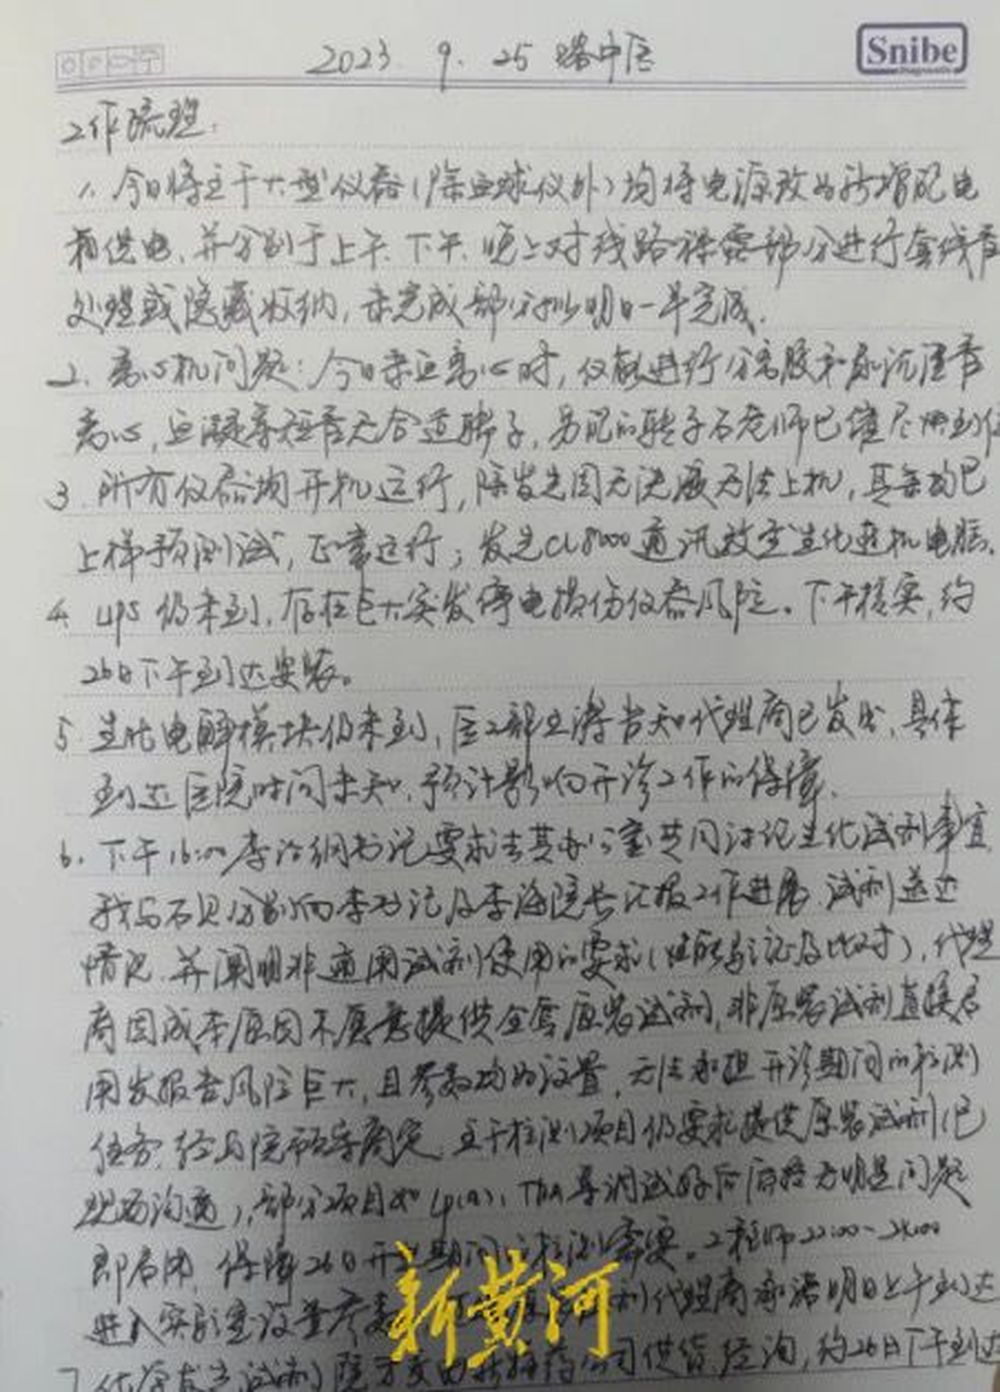 2023.9.25 中医
Snibe
Diagnostic
工作流程:
1. 今日将主干大型仪器(除血球仪外)均将电源改为新增配电
箱供电,并分别于上午、下午、晚上对线路裸露部分进行套线管
处理或隐藏收纳,未完成部分拟明日一早完成.
2. 离心机问题:今日采血离心时,仅能进行分离胶和尿沉渣管
离心,血凝等短管无合适转子,另配的转子石老师已催尽快到位
3. 所有仪器均开机运行,除发光因无洗液无法上机,其余均已
上样预测试,正常运行;发光CL8000通讯改至生化连机电脑.
4. UPS仍未到,存在巨大突发停电损伤仪器风险。下午核实,约
26日下午到达安装。
5. 生化电解模块仍未到,医工部主 告知代理商已发出,具体
到达医院时间未知,预计影响开诊工作的保障.
6. 下午16:00李治纲书记要求去其办公室共同讨论生化试剂事宜
我与石 分别向李书记及李海院长汇报工作进展、试剂送达
情况,并阐明非通用试剂使用的要求(性能验证及比对),代理
商因成本原因不愿意提供全套原装试剂,非原装试剂直接启
用发报告风险巨大,且参数均为设置,无法承担开诊期间的检测
任务,经与院领导商定,主干检测项目仍要求提供原装试剂(已
现场沟通),部分项目如Lp(a)、TBA等调试好后质控无明显问题
即启用,保障26日开 期间 检测需要。工程师22:00~24:00
进入实验室设置参数 剂代理商承诺明日上午到达
7. 化学发光试剂院方交由 公司供货,经询,约26日下午到达
新黄河